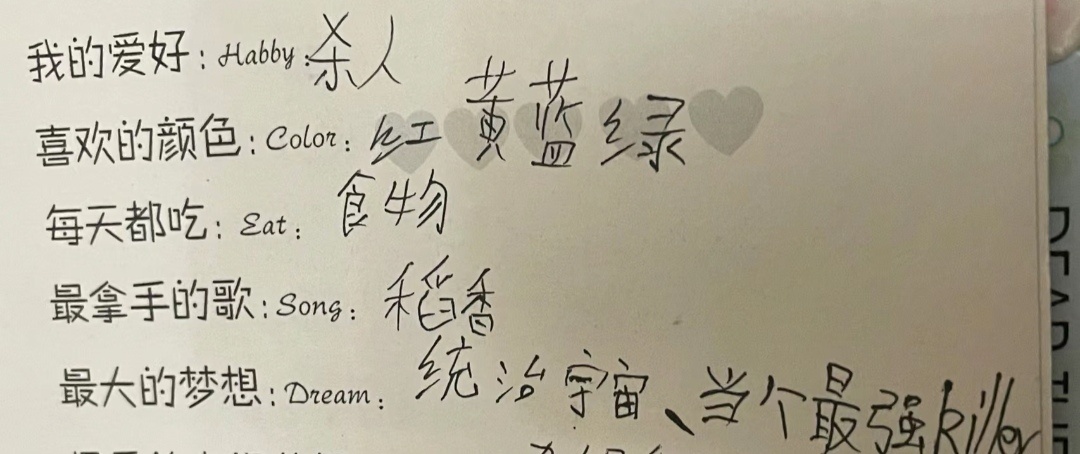 我的爱好：Habby：杀人
喜欢的颜色：Color：红黄蓝绿
每天都吃：Eat：食物
最拿手的歌：Song：稻香
最大的梦想：Dream：统治宇宙、当个最强killer
DEAR